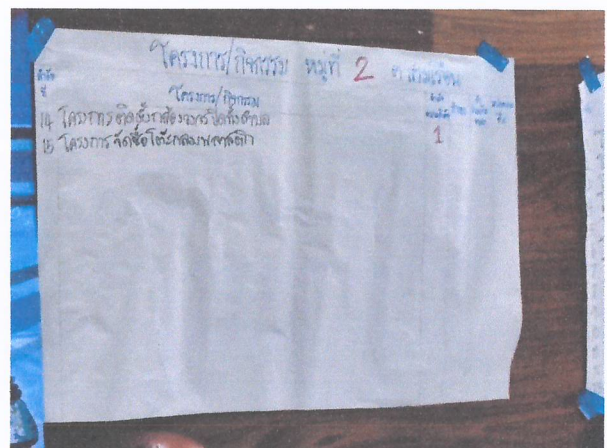 โครงการ/กิจกรรม หมู่ที่ 2 ต.สามเรือน
ลำดับ
ที่
โครงการ/กิจกรรม
14 โครงการติดตั้งกล้องวงจรปิดทั้งตำบล
15 โครงการจัดซื้อโต๊ะกลมพลาสติก
1